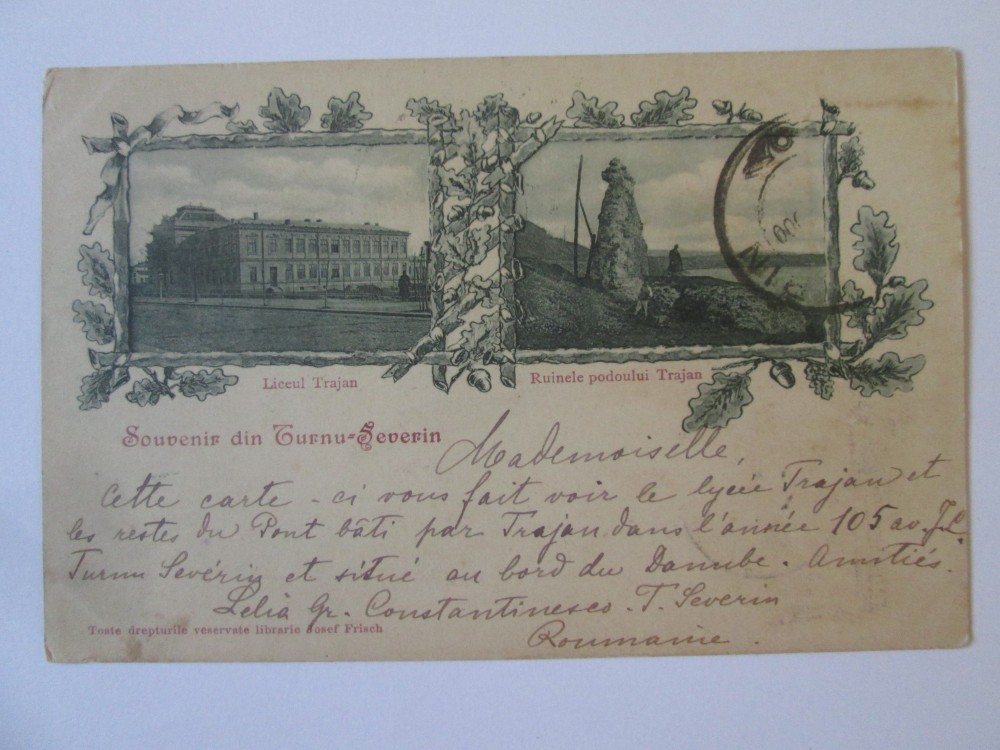 Liceul Trajan
Ruinele podoului Trajan
Souvenir din Turnu-Severin
Mademoiselle,
Cette carte-ci vous fait voir le lycée Trajan et
les restes du Pont bâti par Trajan dans l'année 105 av. J.C.
Turnu Sevérin et situé au bord du Danube. Amitiés.
Lelia Gr. Constantinesco. T. Severin
Roumanie.
Toate drepturile reservate librarie Josef Frisch